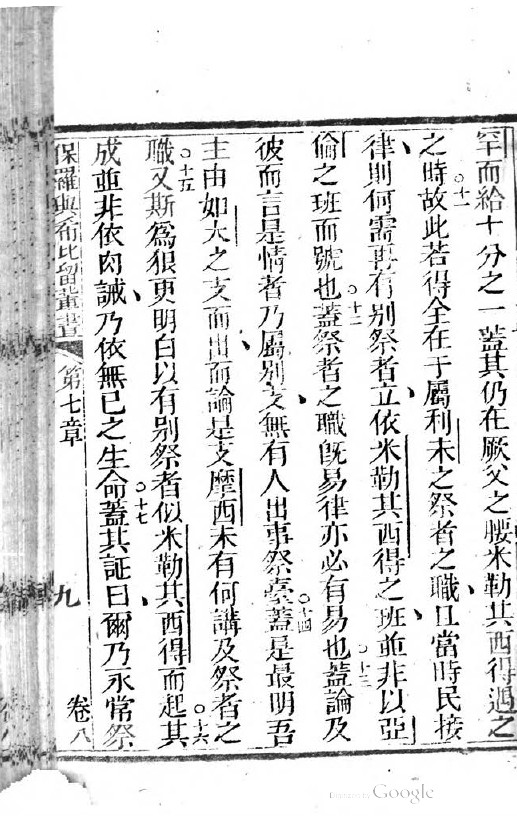 罕而給十分之一蓋其仍在厥父之腰米勒其西得遇之
之時○十一故此若得全在于屬利未之祭者之職且當時民接
律則何需再有別祭者立依米勒其西得之班並非以亞
倫之班而號也○十二蓋祭者之職既易律亦必有易也○十三蓋論及
彼而言是情者乃屬別支無有人出事祭臺○十四蓋是最明吾
主由如大之支而出而論是支摩西未有何講及祭者之
職○十五又斯為狠更明白以有別祭者似米勒其西得而起○十六其
成並非依肉誡乃依無已之生命○十七蓋其証曰爾乃永常祭
保羅與希比留輩書 第七章 九 卷八
Digitized by Google